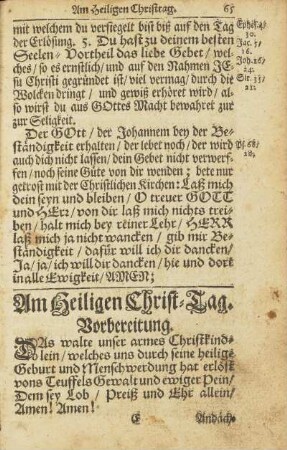 Am Heiligen Christtag. 65
mit welchem du versiegelt bist biß auf den Tag
der Erlösung. 5. Du hast zu deinem besten
Seelen-Vortheil das liebe Gebet/ wel-
ches/ so es ernstlich/ und auf den Nahmen JE-
su Christi gegründet ist/ viel vermag/ durch die
Wolcken dringt/ und gewiß erhöret wird/ al-
so wirst du aus GOttes Macht bewahret zur
zur Seligkeit.
Der GOtt/ der Johannem bey der Be-
ständigkeit erhalten/ der lebet noch/ der wird
auch dich nicht lassen/ dein Gebet nicht verwerf-
fen/ noch seine Güte von dir wenden; bete nur
getrost mit der Christlichen Kirchen: Laß mich
dein seyn und bleiben/ O treuer GOTT
und HErr/ von dir laß mich nichts trei-
ben/ halt mich bey reiner Lehr/ HERR
laß mich ja nicht wancken/ gib mir Be-
ständigkeit/ dafür will ich dir dancken/
Ja/ ja/ ich will dir dancken/ hie und dort
in alle Ewigkeit/ AMEN;
Ephes. 4/
30.
Jac. 5/
16.
Joh. 16/
Sir. 35/
21.
Ps. 68/
Am Heiligen Christ-Tag.
Vorbereitung.
DAs walte unser armes Christkind-
lein/ welches uns durch seine heilige
Geburt und Menschwerdung hat erlöst
vons Teuffels Gewalt und ewiger Pein/
Dem sey Lob/ Preiß und Ehr allein/
Amen! Amen!
E Andäch-